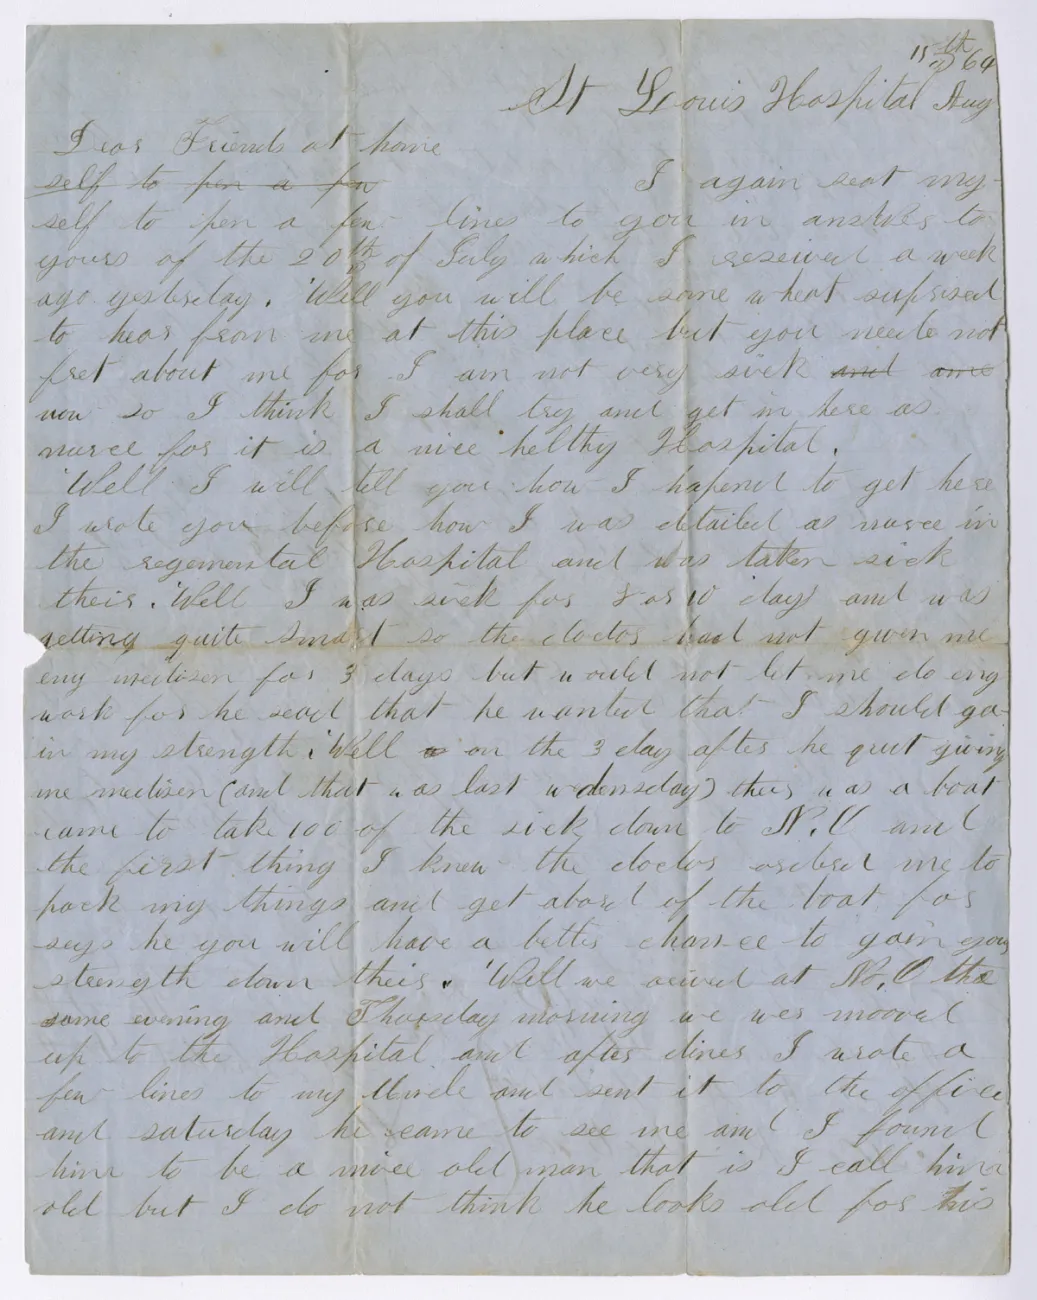 15th 64
St Louis Hospital Aug
Dear Friends at home
self to pen a few
I again seat my-
self to pen a few lines to you in answer to
yours of the 20th of July which I reseived a week
ago yesterday. Well you will be some what suprised
to hear from me at this place but you neede not
fret about me for I am not very sick and ame
now so I think I shall try and get in here as
nurce for it is a nice helthy Hospital.
Well I will tell you how I hapend to get here
I wrote you before how I was detailed as nurce in
the regemental Hospital and was taken sick
their. Well I was sick for 8 or 10 days and was
getting quite smart so the doctor had not given me
eny medisen for 3 days but would not let me do eny
work for he sead that he wanted that I should ga-
in my strength. Well on the 3 day after he quit giving
me medisen (and that was last wedensday) their was a boat
came to take 100 of the sick down to N.O and
the first thing I knew the doctor ordered me to
pack my things and get abord of the boat for
seys he you will have a better chan-ce to gain your
strength down their. Well we arived at N.O the
same evening and Thursday morning we wer mooved
up to the Hospital and after diner I wrote a
few lines to my Uncle and sent it to the office
and saturday he came to see me and I found
him to be a nice old man that is I call him
old but I do not think he looks old for his